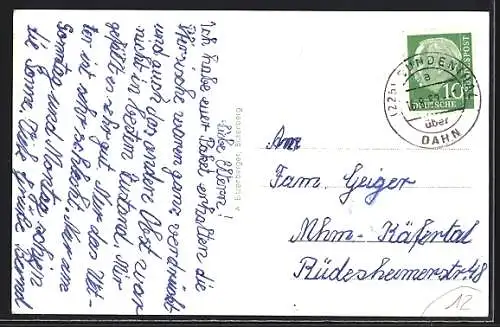 Liebe Eltern!
Ich habe euer Paket erhalten die
Pfirsiche waren ganz verdrückt
und auch das andere Obst war
nicht in bestem Zustand. Mir
gefällt es sehr gut. Nur das Wet-
ter ist sehr schlecht. Nur am
Sonntag und Montag schien
die Sonne. Viele Grüße Bernd
A. Bitzenberger,
(22b) BUNDENTHAL
a
über
DAHN
DEUTSCHE
BUNDESPOST
10
An
Fam. Geiger
Mhm.-Käfertal
Rüdesheimerstr. 48
12